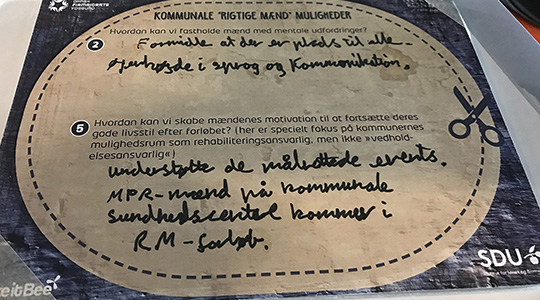 DANSK
FIRMAIDRÆTS
FORBUND
KOMMUNALE "RIGTIGE MÆND" MULIGHEDER
2
Hvordan kan vi fastholde mænd med mentale udfordringer?
Formidle at der er plads til alle.
øjenhøjde i sprog og Kommunikation.
5
Hvordan kan vi skabe mændenes motivation til at fortsætte deres
gode livsstil efter forløbet? (her er specielt fokus på kommunernes
mulighedsrum som rehabiliteringsansvarlig, men ikke »vedhold-
elsesansvarlig«)
understøtte de målrettede events.
MPR-mænd på kommunale
sundhedscentel kommer i
RM-forløb.
reitBee
SDU